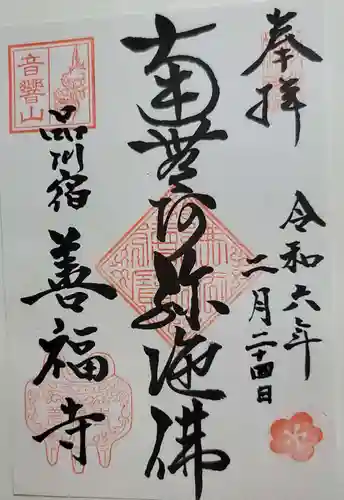 奉拝
令和六年
二月二十四日
南無阿弥陀佛
音響山
品川宿
善福寺